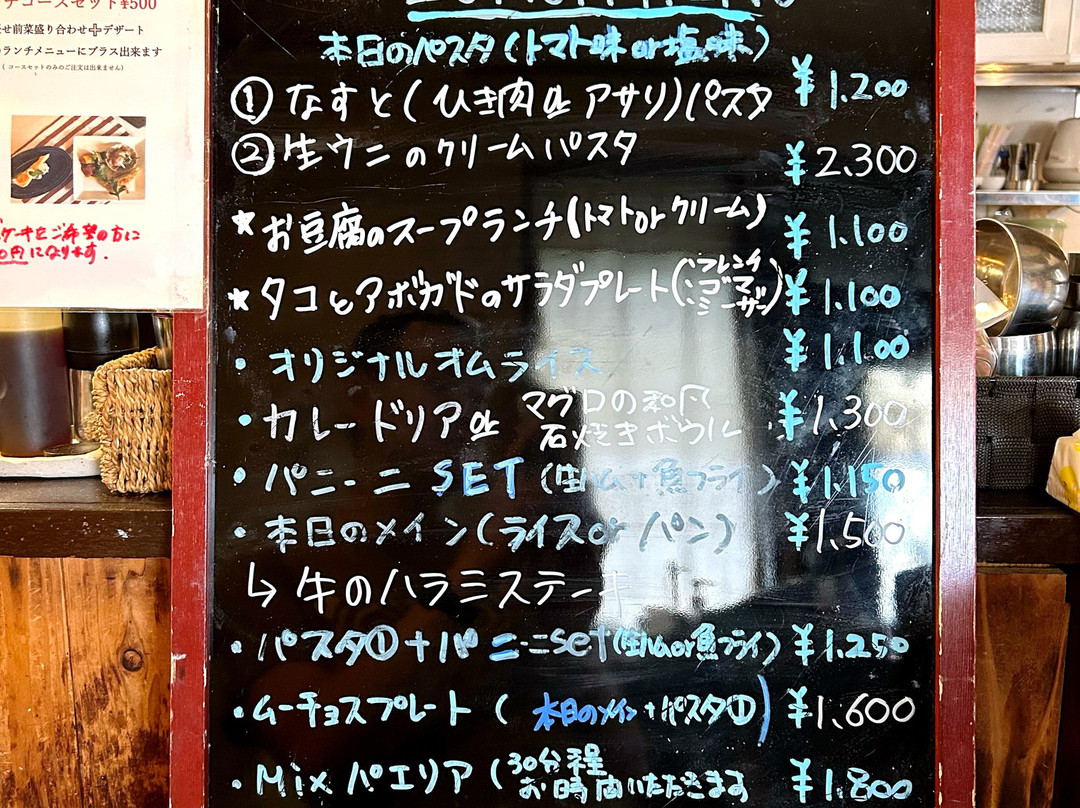 コースセット¥500
前菜盛り合わせ+デザート
ランチメニューにプラス出来ます
(コースセットのみのご注文は出来ません)
ケーキをご希望の方に
円になります.
本日のパスタ(トマト味or塩味)
① なすと(ひき肉orアサリ)パスタ ¥1.200
② 生ウニのクリームパスタ ¥2.300
★お豆腐のスープランチ(トマトorクリーム) ¥1.100
★タコとアボカドのサラダプレート(フレンチ ゴマ シーザー) ¥1.100
・オリジナルオムライス ¥1.100
・カレードリアor マグロの和風石焼きボウル ¥1,300
・パニーニ SET (生ハムor魚フライ) ¥1.150
・本日のメイン(ライスorパン) ¥1,500
↳ 牛のハラミステーキ
・パスタ①+パニーニset(生ハムor魚フライ) ¥1.250
・ムーチョスプレート(本日のメイン+パスタ①) ¥1,600
・Mix パエリア(30分程お時間いただきます ¥1.800